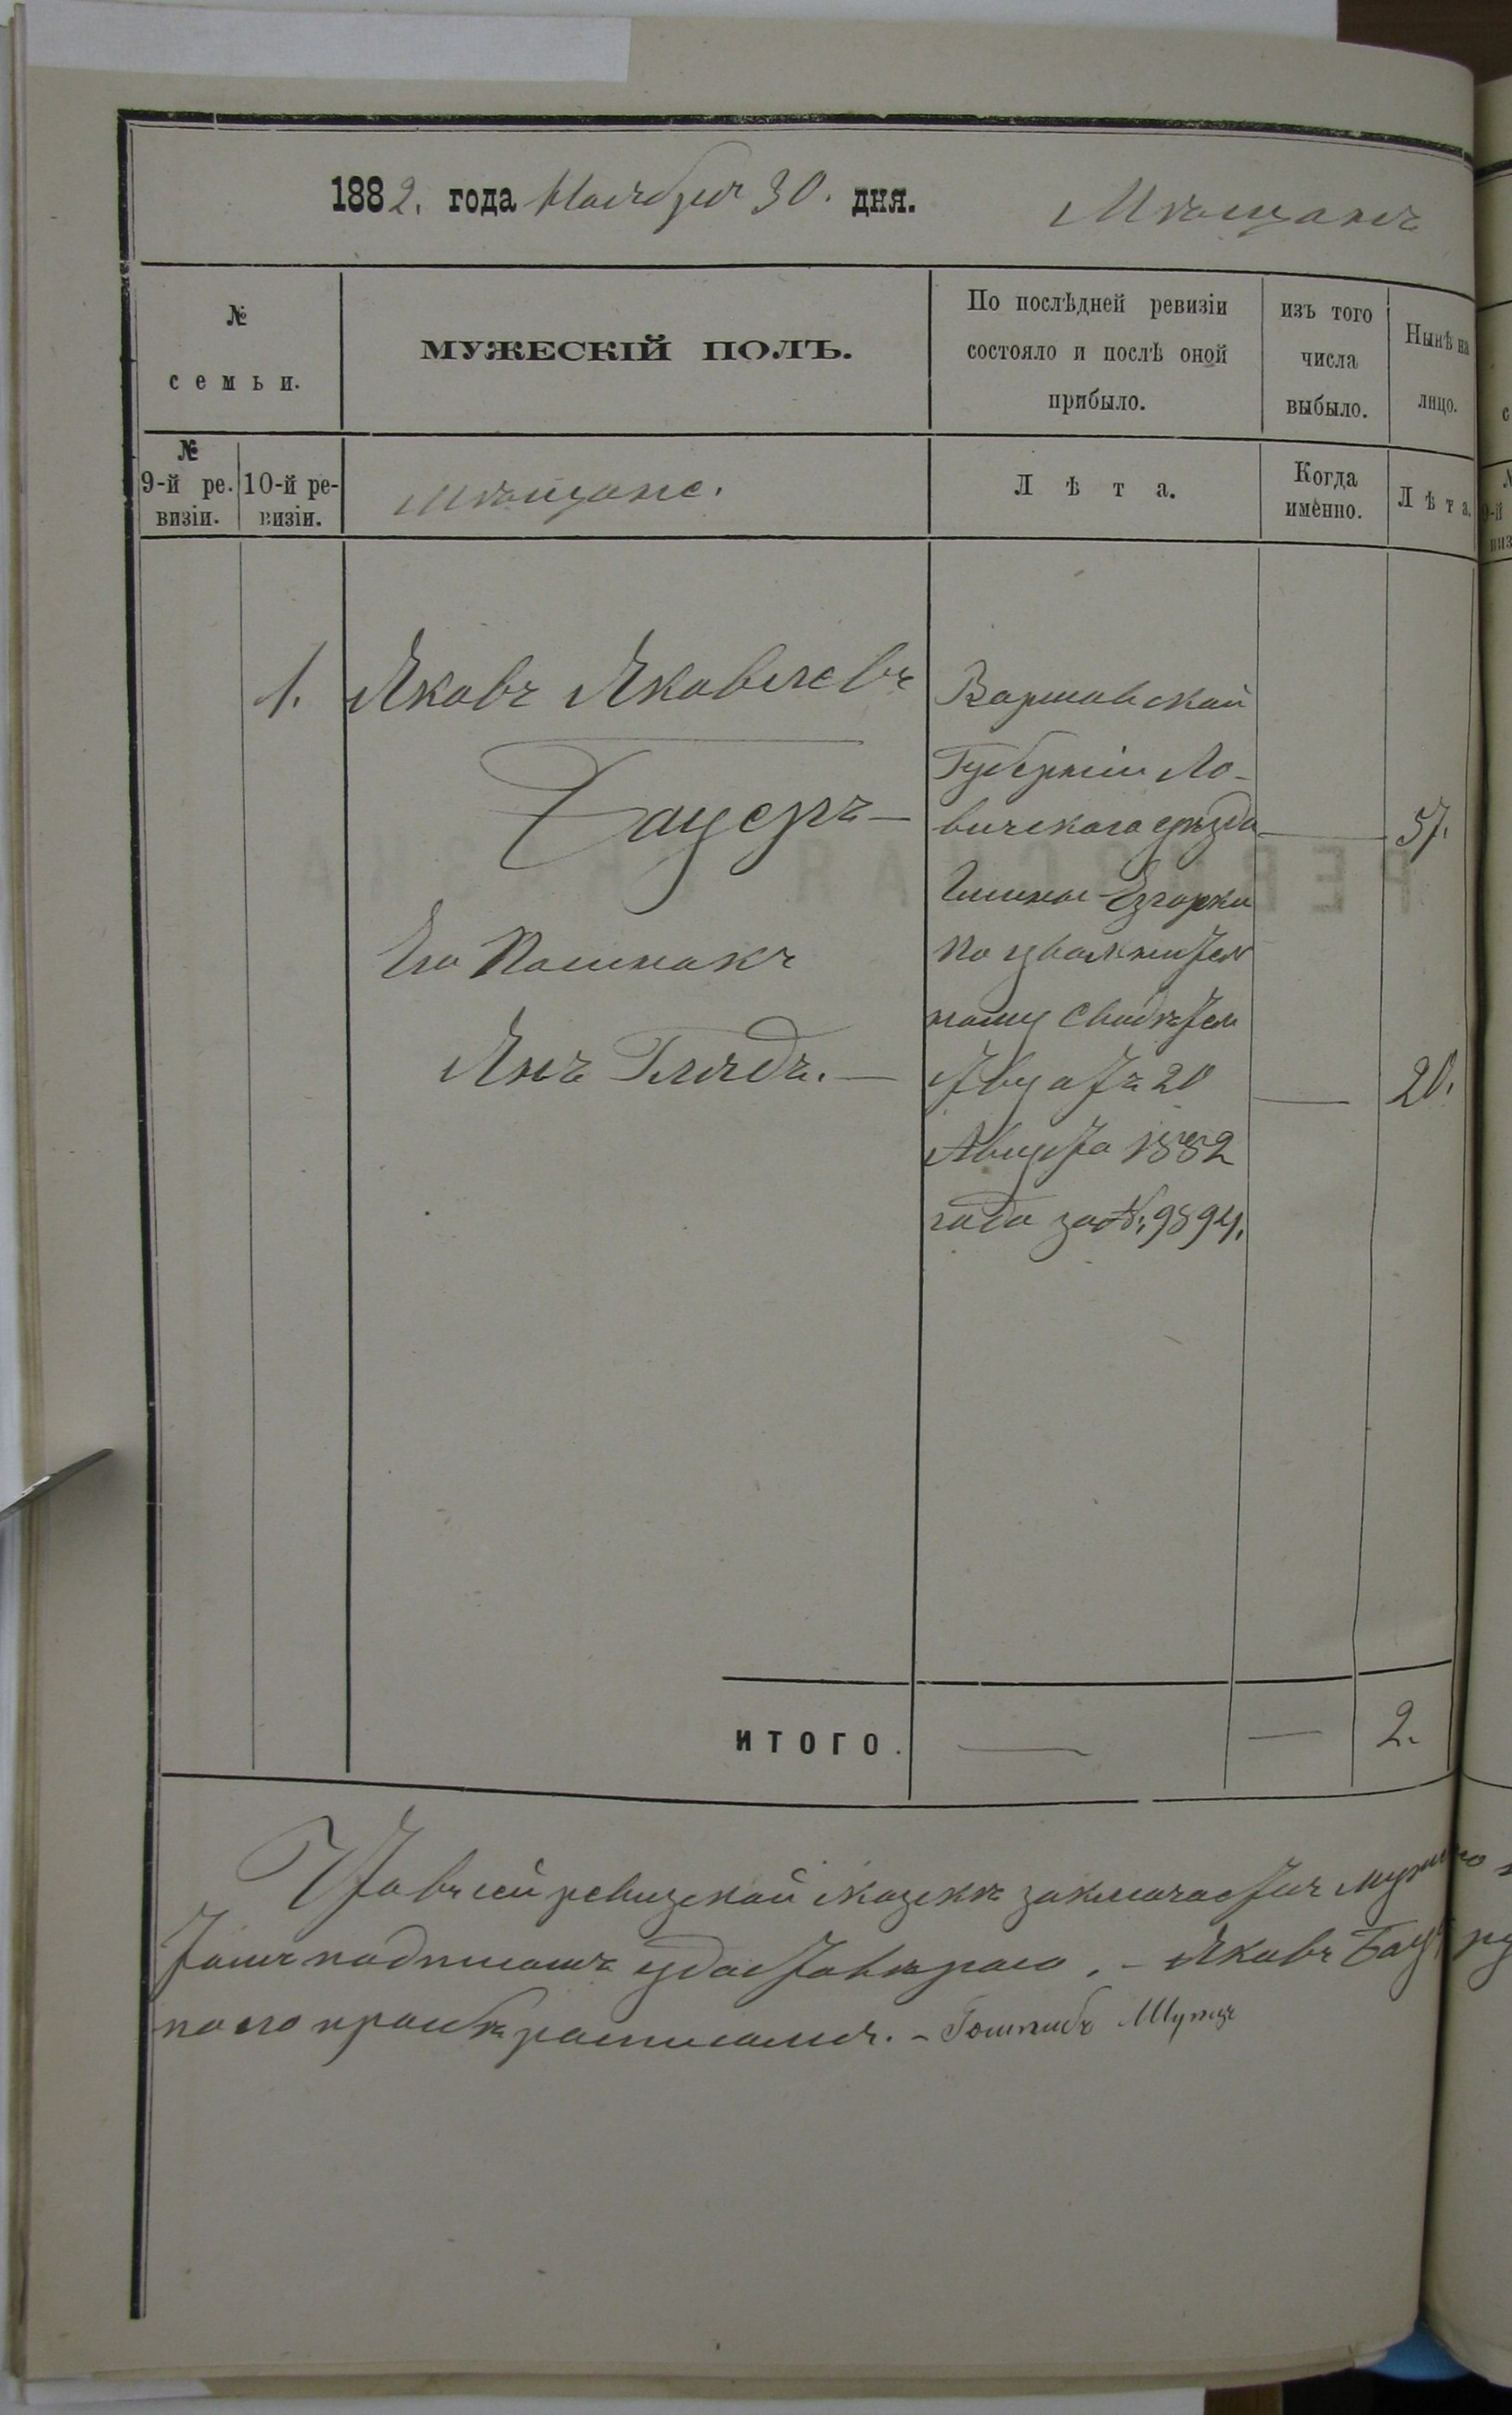 1882. года Ноября 30. дня. Мѣщанъ
№ семьи.
МУЖЕСКІЙ ПОЛЪ.
По послѣдней ревизіи
состояло и послѣ оной
прибыло.
изъ того
числа
выбыло.
Нынѣ на
лицо.
№
9-й ре-
визіи.
10-й ре-
визіи.
Мѣщане.
Л ѣ т а.
Когда
именно.
Л ѣ т а.
1. Яковъ Яковлевъ
Бауеръ —
57.
Его Племянникъ
Янъ —
20.
Варшавской
Губерніи Ло-
вичского уѣзда
Гмины
по увольнитель
ному Свидѣтель
ству отъ 20
Августа 1882
года за № 9894.
ИТОГО. — — 2.
Что въ сей ревизской сказкѣ заключается
подписомъ удостовѣряю. – Яковъ
по его прозьбѣ росписался. – Готлибъ Шульцъ